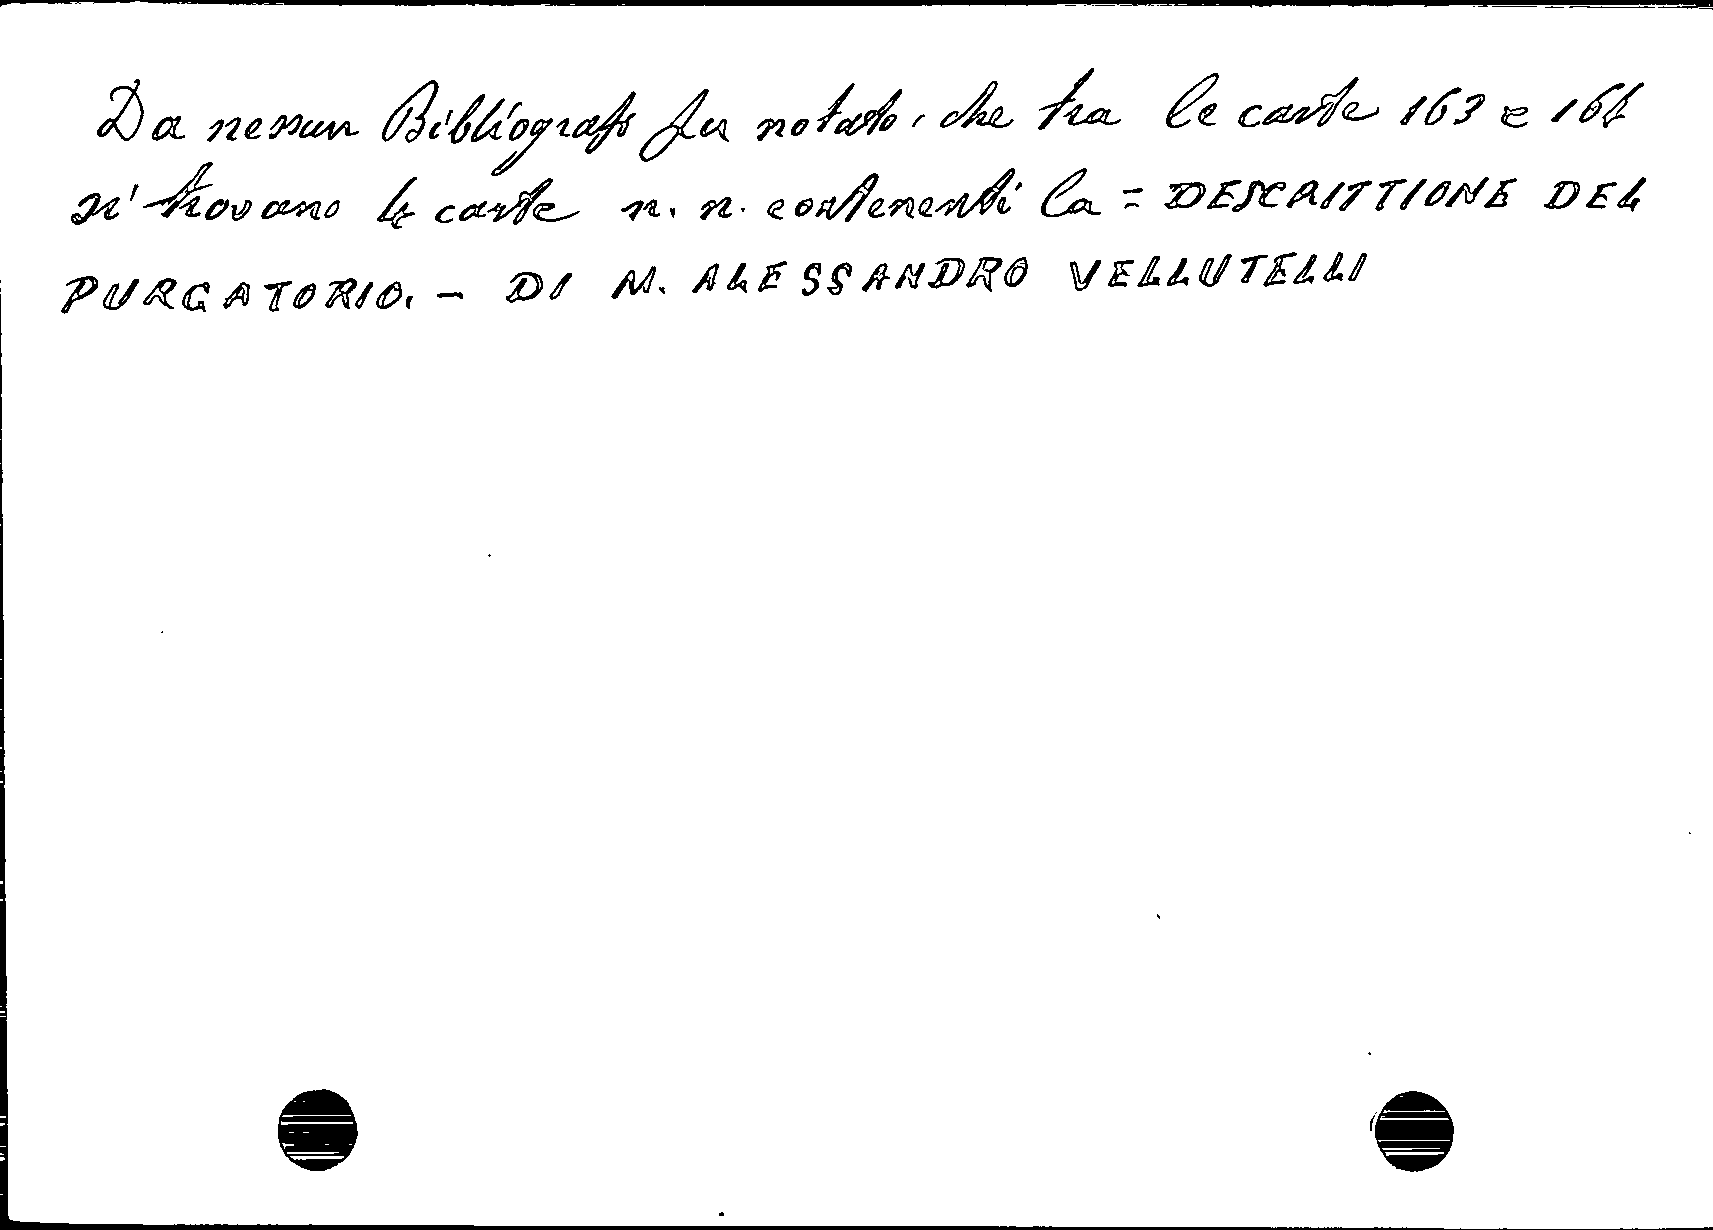 Da nessun Bibliografo fu notato, che tra le carte 163 e 164
si trovano 4 carte n. n. contenenti la = DESCRITTIONE DEL
PURGATORIO. - DI M. ALESSANDRO VELLUTELLI